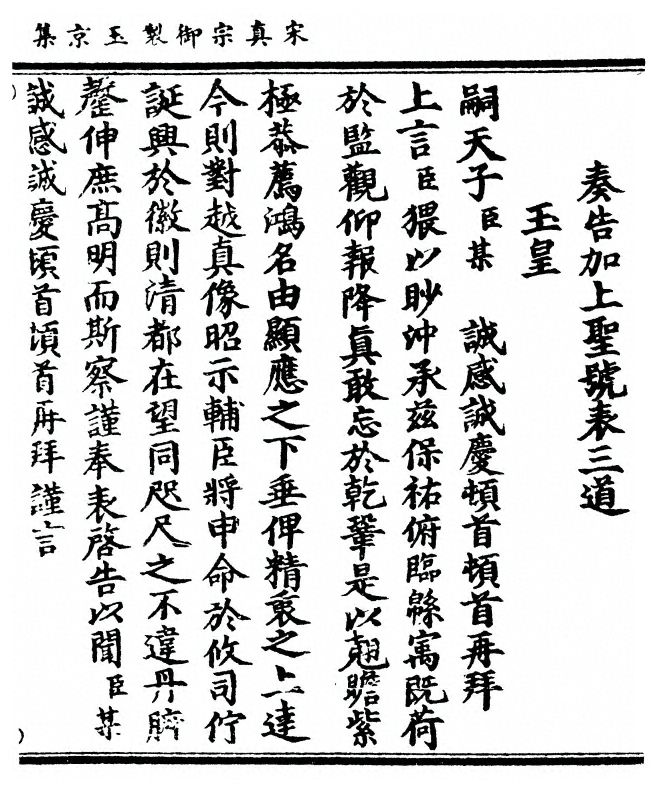 宋真宗御製玉京集
奏告加上聖號表三道
玉皇
嗣天子臣某　誠感誠慶頓首頓首再拜
上言臣猥以眇沖承茲保祐俯臨緜寓旣荷
於監觀仰報降真敢忘於乾鞏是以翹瞻紫
極恭薦鴻名由顯應之下垂俾精衷之上達
今則對越真像昭示輔臣將申命於攸司佇
誕興於徽則清都在望同咫尺之不違丹臍
罄伸庶高明而斯察謹奉表啓告以聞臣某
誠感誠慶頓首頓首再拜謹言